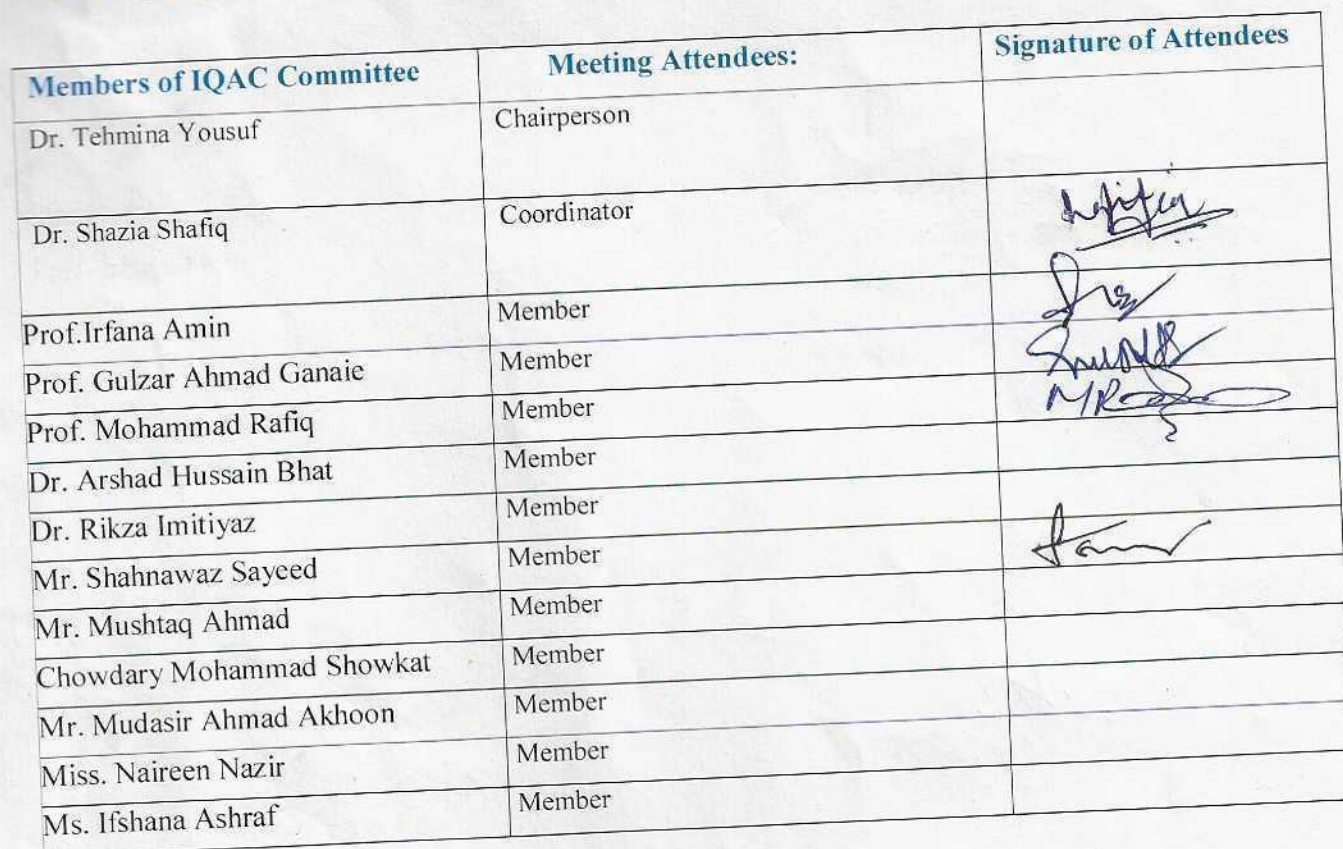 Members of IQAC Committee Meeting Attendees: Signature of Attendees
Dr. Tehmina Yousuf Chairperson
Dr. Shazia Shafiq Coordinator
Prof.Irfana Amin Member
Prof. Gulzar Ahmad Ganaie Member
Prof. Mohammad Rafiq Member
Dr. Arshad Hussain Bhat Member
Dr. Rikza Imitiyaz Member
Mr. Shahnawaz Sayeed Member
Mr. Mushtaq Ahmad Member
Chowdary Mohammad Showkat Member
Mr. Mudasir Ahmad Akhoon Member
Miss. Naireen Nazir Member
Ms. Ifshana Ashraf Member